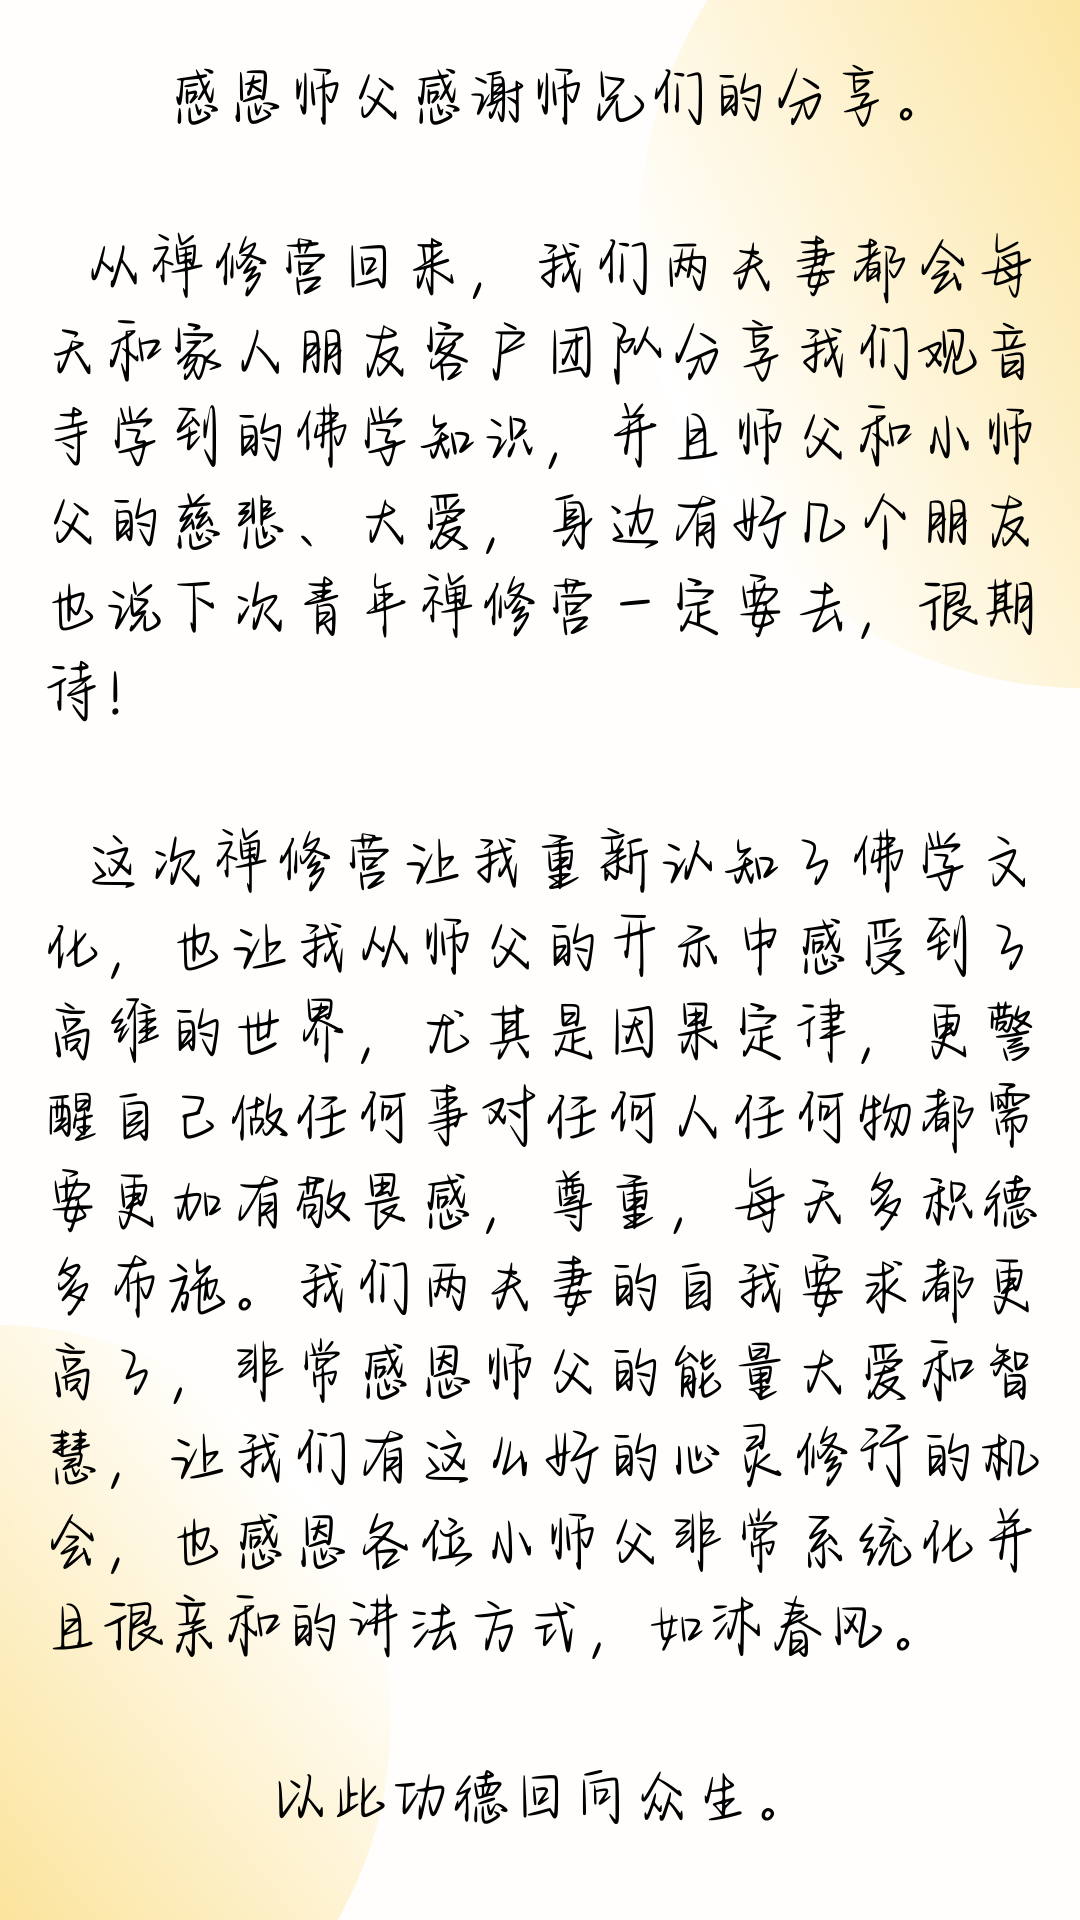 感恩师父感谢师兄们的分享。
从禅修营回来，我们两夫妻都会每
天和家人朋友客户团队分享我们观音
寺学到的佛学知识，并且师父和小师
父的慈悲、大爱，身边有好几个朋友
也说下次青年禅修营一定要去，很期
待！
这次禅修营让我重新认知了佛学文
化，也让我从师父的开示中感受到了
高维的世界，尤其是因果定律，更警
醒自己做任何事对任何人任何物都需
要更加有敬畏感，尊重，每天多积德
多布施。我们两夫妻的自我要求都更
高了，非常感恩师父的能量大爱和智
慧，让我们有这么好的心灵修行的机
会，也感恩各位小师父非常系统化并
且很亲和的讲法方式，如沐春风。
以此功德回向众生。